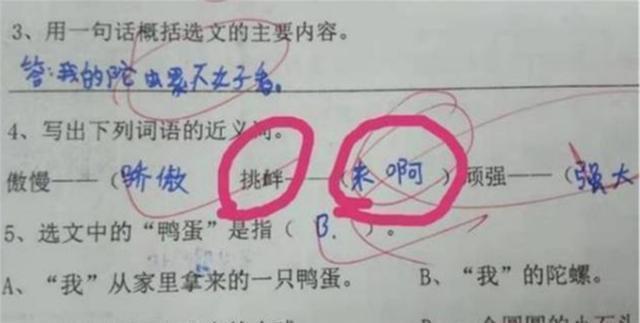 3、用一句话概括选文的主要内容。
答:我的陀虫累不太好看。
4、写出下列词语的近义词。
傲慢——(骄傲 挑衅——(来啊)顽强——(强大
5、选文中的“鸭蛋”是指( B. )。
A、“我”从家里拿来的一只鸭蛋。 B、“我”的陀螺。